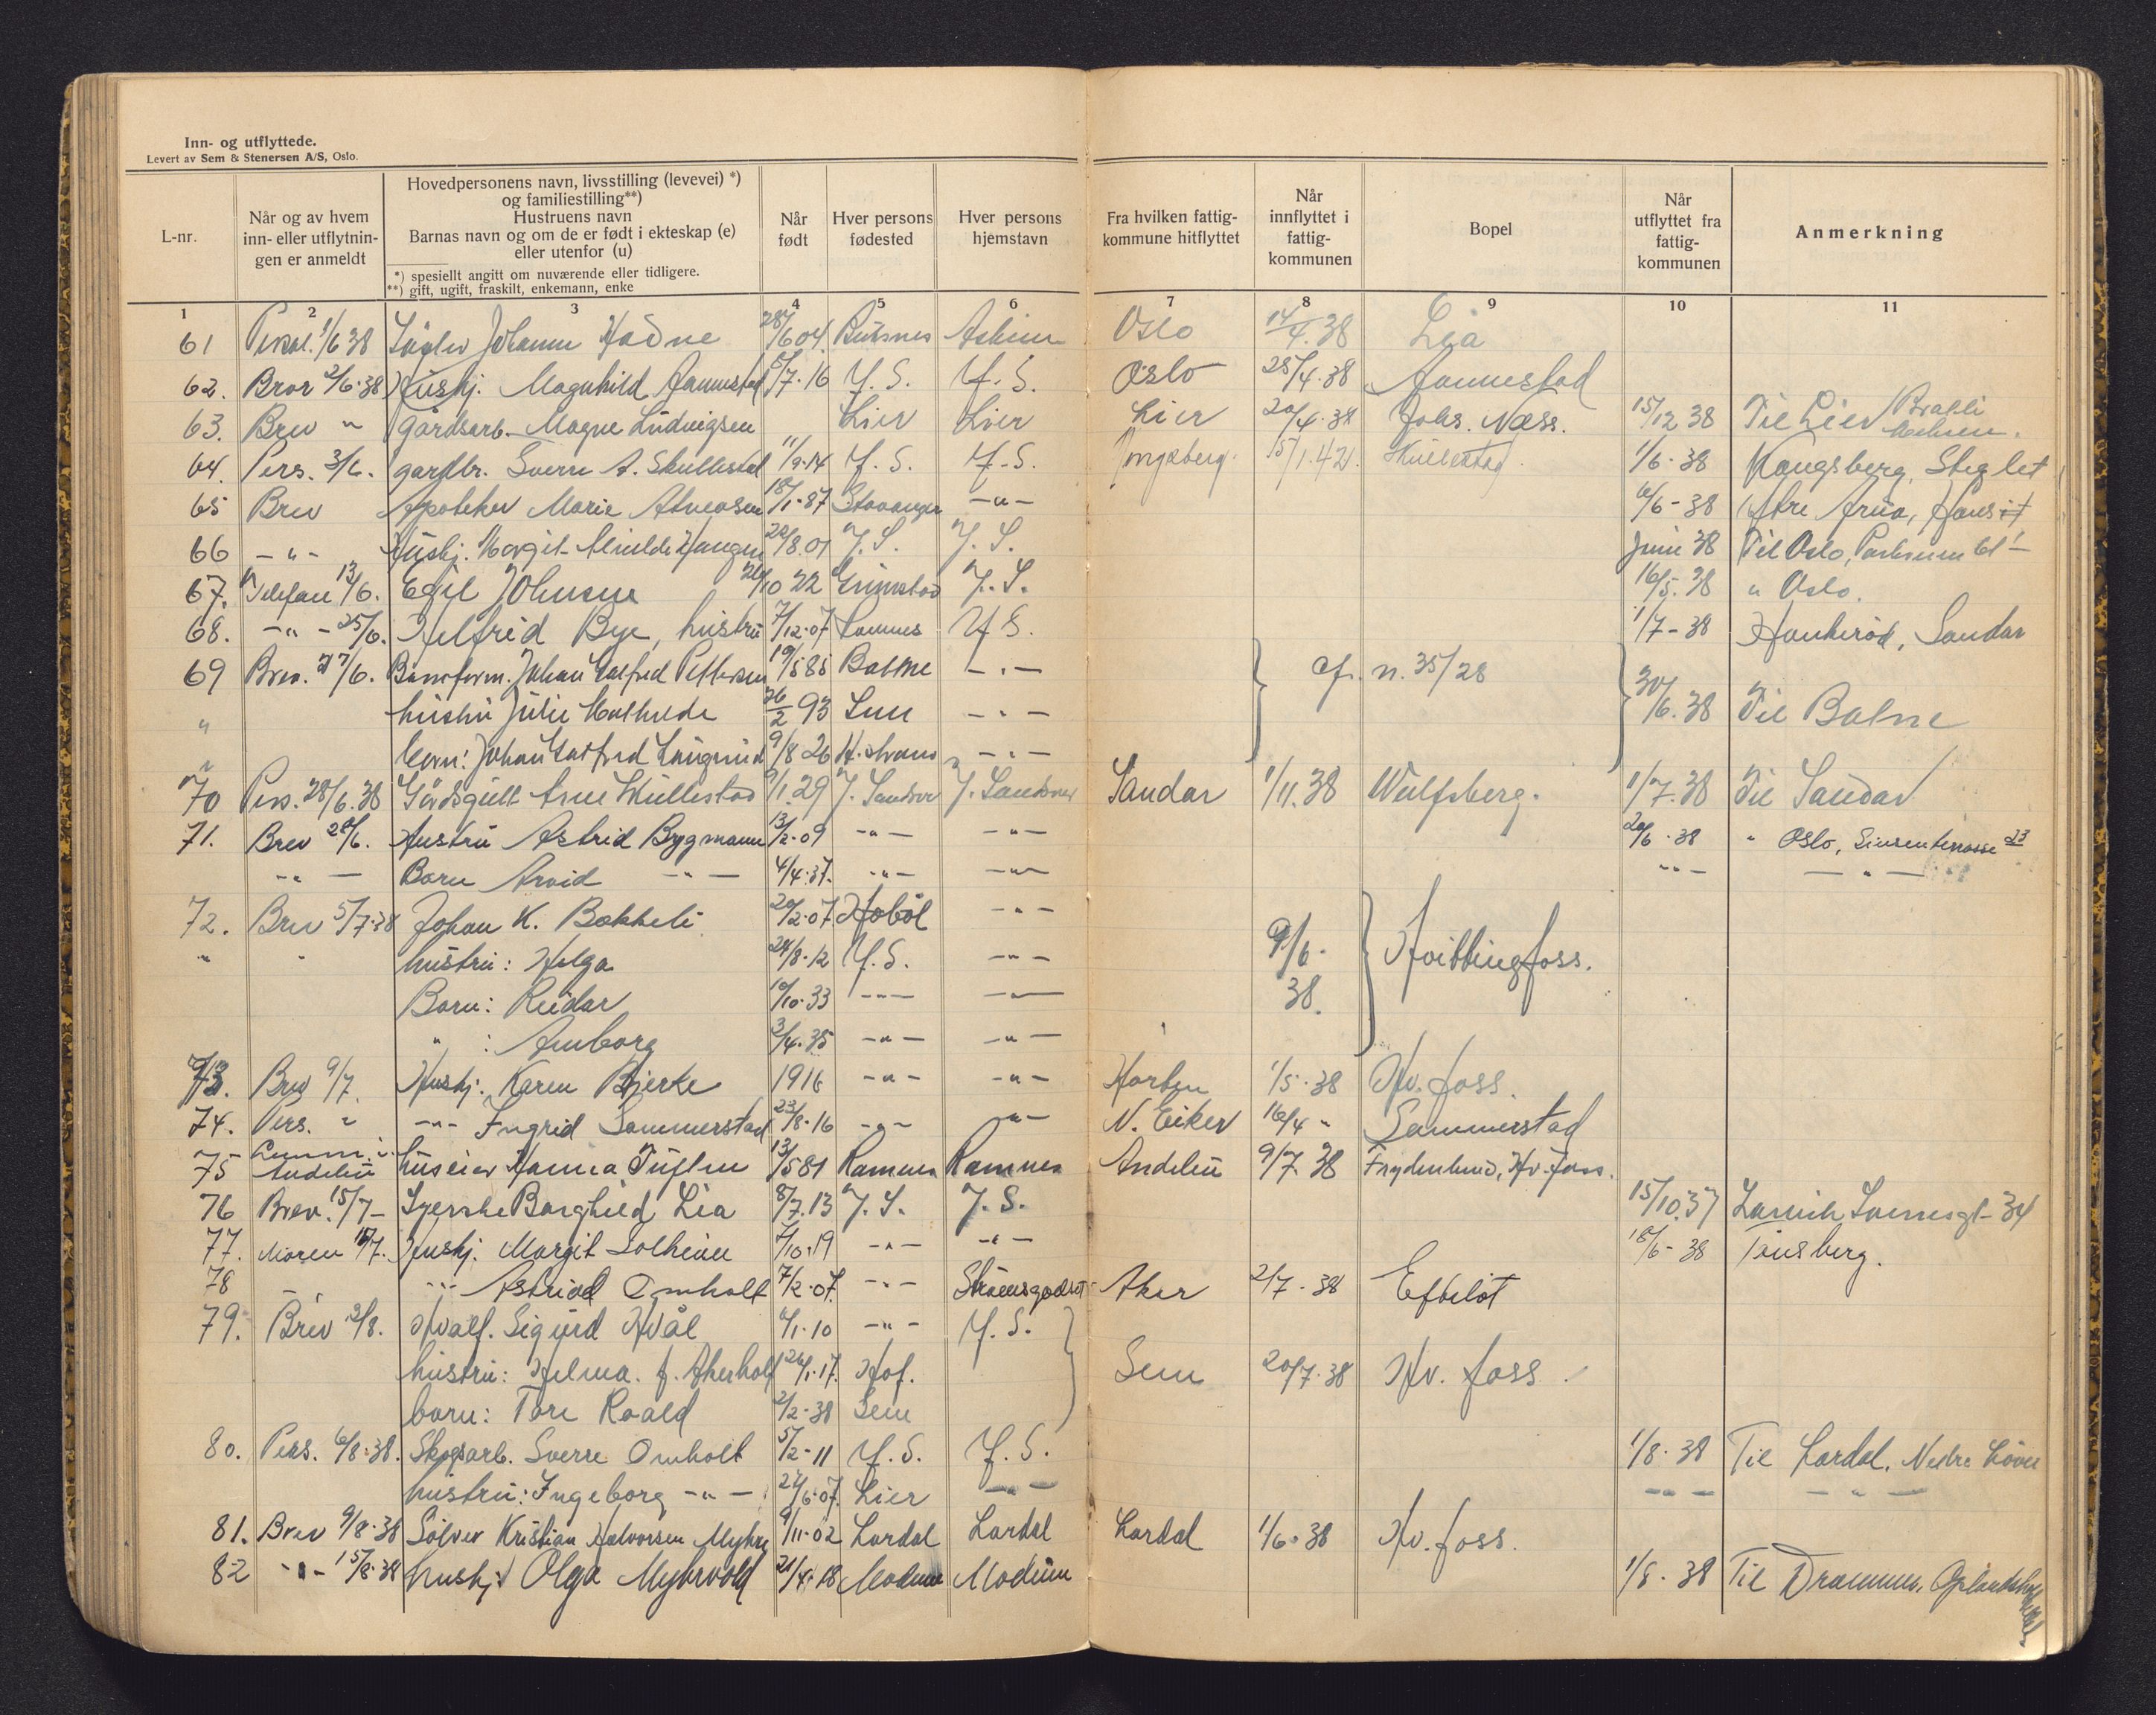 Inn- og utflyttede.
Levert av Sem & Stenersen A/S, Oslo.
L-nr. Når og av hvem inn- eller utflytnin- gen er anmeldt Hovedpersonens navn, livsstilling (levevei) *) og familiestilling**) Hustruens navn Barnas navn og om de er født i ekteskap (e) eller utenfor (u) *) spesiellt angitt om nuværende eller tidligere. **) gift, ugift, fraskilt, enkemann, enke Når født Hver persons fødested Hver persons hjemstavn Fra hvilken fattig- kommune hitflyttet Når innflyttet i fattig- kommunen Bopel Når utflyttet fra fattig- kommunen Anmerkning
1 2 3 4 5 6 7 8 9 10 11
61 1/6 38 Johanne 28/6 04 Askim Oslo 14/4.38 Lia
62. Bror 2/6.38 Hushj. Magnhild 7.16 Y.S. Y.S. Oslo 25/4.38
63. Brev " Gårdsarb. Magne Ludvigsen Lier Lier Lier 20/4.38 Johs. Næss. 15/12 38 Til Lier
64. Pers. 3/6. gardbr. Sverre A. Skullestad 11/9.14 Y.S. Y.S. 15/1.42. Skullestad. 1/6.38 Kongsberg,
65 Brev Apoteker Marie 18/1.87 Stavanger -"- 6/6-38
66 -"- Hushj. Margit Haugen 22/8.01 Y.S. Y.S. Juni 38 Til Oslo,
67. Telefon 13/6. Egil Johnsen 10 22 Grimstad Y.S. 16/5.38 " Oslo.
68. -"- 25/6. Helfrid Bye, hustru 7/12.07 Y.S. 1/7-38 Sandar
69 Brev. 27/6. Johan Galfred Pettersen 19/5 85 Botne -"- cf. n. 35/28 30/6.38 Til Botne
" hustru Julie Mathilde 26/2 93 -"-
" barn: Johan Galfred 9/8 26 -"-
70 Pers. 28/6.38 Gårdsgutt Arne Skullestad 9/1.29 Y. Sandsvær Y. Sandsvær Sandar 1/11.38 Wulfsberg. 1/7.38 Til Sandar
71. Brev 28/6. Hustru Astrid Brygmann 13/2.09 -"- -"- 20/6.38 " Oslo, Sinsenterrasse 23
-"- Barn Arvid -"- 4/4.37. -"- -"- -"- -"-
72. Brev 5/7.38 Johan K. Bakkeli 20/2.07. Hobøl -"- 9/6. 38. Hvittingfoss.
" " hustru: Helga 24/8.12 Y.S. -"-
Barn: Reidar 10/10.33 -"- -"-
" : 3/4.35 -"- -"-
73. Brev 9/7. Hushj. Karen Bjerke 1916 -"- -"- Horten 1/5.38 Hv. foss.
74. Pers. " -"- Ingrid Sommerstad 23/8.16 -"- -"- N. Eiker 16/4 " Sommerstad
75 Andebu huseier Hanna 13/5 81 Ramnes Ramnes Andebu 9/7.38 Frydenlund, Hv. foss.
76 Brev. 15/7- Syerske Borghild Lia 8/7.13 Y.S. Y.S. 15/10.37 Larvik 34
77. Moren 15/7. Hushj. Margit Solheim 7/10.19 -"- -"- 18/6-38 Tønsberg.
78 -"- Astrid Omholt 7/2.07. -"- Strømsgodset Aker 2/7.38 Efteløt
79. Brev 3/8. Sigurd Hvål 4/1.10 -"- Y.S. Sem 20/7.38 Hv. foss.
hustru: Helma. f. Akerholt 26/1.17. Hof.
barn: Tore Roald 2/2-38 Sem
80. Pers. 6/8.38. Skogsarb. Sverre Omholt 5/2-11 Y.S. Y.S. 1/8.38 Til Lardal, Nedre
hustru: Ingeborg -"- 24/6.07. Lier -"- -"- -"-
81. Brev 9/8.38 Kristian Halvorsen Myhre 9/11.02 Lardal Lardal Lardal 1/6.38 Hv. foss.
82 -"- 15/8.38 hushj. Olga Myhrvold 21/4.18 Modum Modum 1/8.38 Til Drammen,